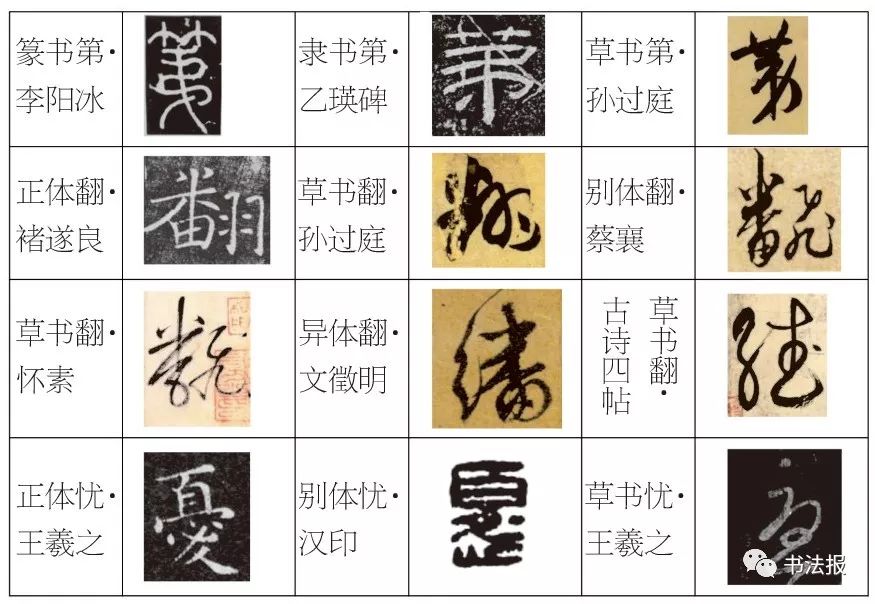 篆书第·
李阳冰
第
隶书第·
乙瑛碑
第
草书第·
孙过庭
第
正体翻·
褚遂良
翻
草书翻·
孙过庭
翻
别体翻·
蔡襄
飜
草书翻·
怀素
飜
异体翻·
文徵明
繙
草书翻·
古诗四帖
正体忧·
王羲之
憂
别体忧·
汉印
草书忧·
王羲之
憂
书法报